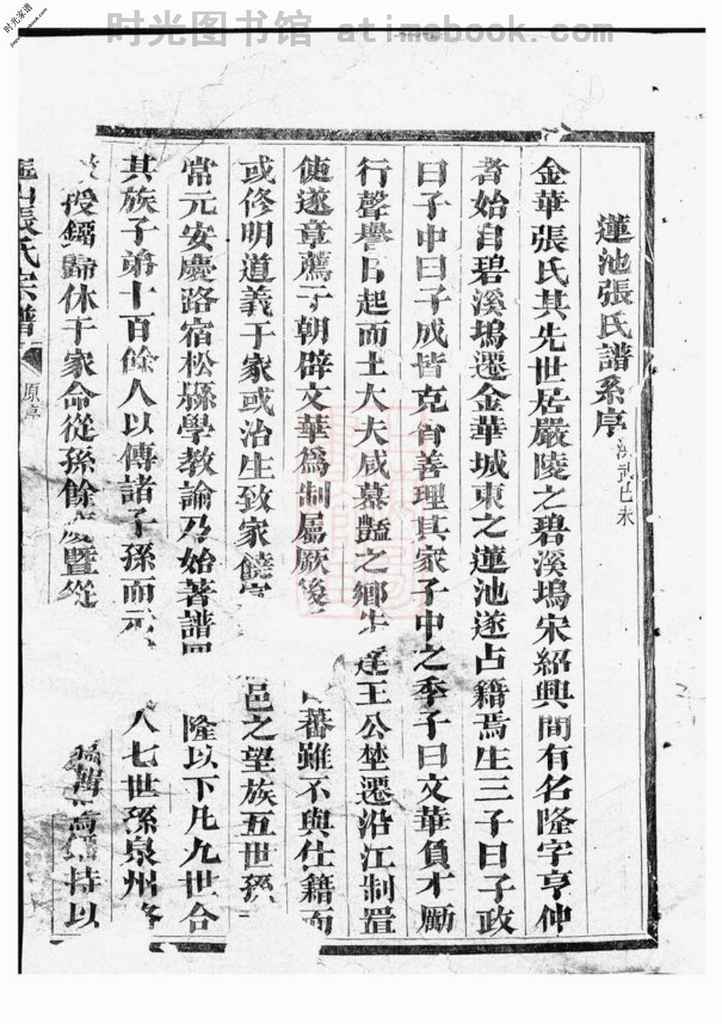 时光图书馆 atimebook.com
时光家谱
蓮池張氏譜系序 洪武己未
金華張氏其先世居嚴陵之碧溪塢宋紹興間有名隆字亨仲
者始自碧溪塢遷金華城東之蓮池遂占籍焉生三子曰子政
曰子中曰子成皆克省善理其家子中之季子曰文華負才勵
行聲譽日起而士大夫咸慕豔之鄉 達王公埜遷沿江制置
使遂章薦于朝辟文華爲制屬厥後 蕃雖不與仕籍而
或修明道義于家或治生致家饒 邑之望族五世孫
常元安慶路宿松縣學教諭乃始著譜 隆以下凡九世合
其族子弟十百餘人以傳諸子孫而元 七世孫泉州
授鐳歸休于家命從孫餘慶暨從 編輯 持以
張氏宗譜
原序